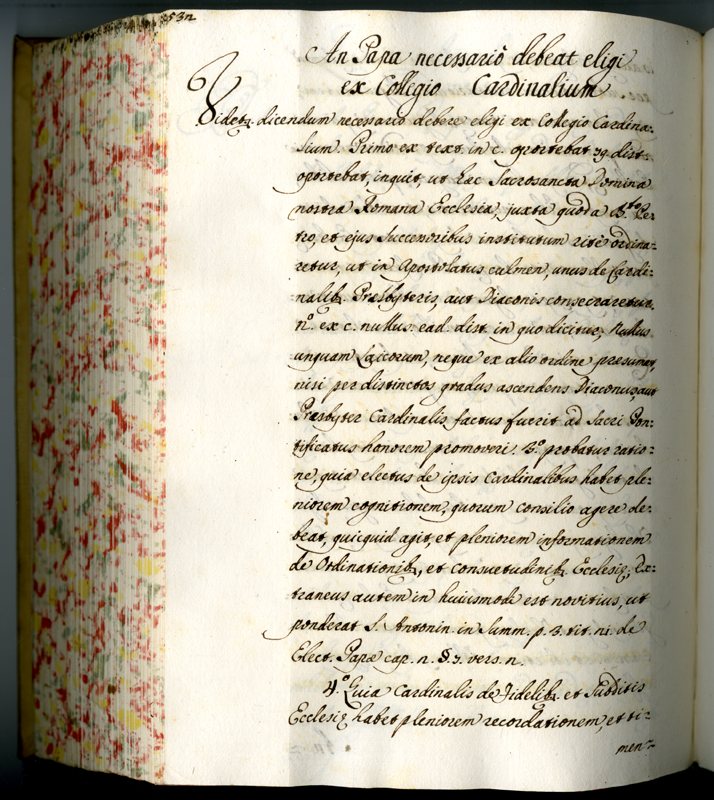 532
An Papa necessariò debeat eligi
ex Collegio Cardinalium
Videtr. dicendum necessario debere eligi ex Collegio Cardina:
lium. Primo ex text. in c. oportebat 79. dist:
oportebat, inquit, ut haec Sacrosancta Domina
nostra Romana Ecclesia, juxta quod a B.to Pe:
tro, et ejus Successoribus institutum ritè ordina=
retur, ut in Apostolatus culmen, unus de Cardi:
nalib. Praesbyteris, aut Diaconis consecraretur.
n.º ex c. nullus. ead. dist. in quo dicitur, Nullus
unquam Laicorum, neque ex alio ordine presumat,
nisi per distinctos gradus ascendens Diaconus, aut
Praesbyter Cardinalis factus fuerit ad Sacri Pon:
tificatus honorem promoveri. 3.º probatur ratio:
ne, quia electus de ipsis Cardinalibus habet ple:
niorem cognitionem, quorum consilio agere de:
beat, quicquid agit, et pleniorem informationem
de Ordinationib., et consuetudinib. Ecclesię; Ex:
traneus autem in huiusmodi est novitius, ut
ponderat S. Antonin. in Summ. p. 3. tit. n1. de
Elect. Papae cap. n. §. 7. vers. n.
4.º Quia Cardinalis de Fidelib. et Subditis
Ecclesię habet pleniorem recordationem, et ti:
men: